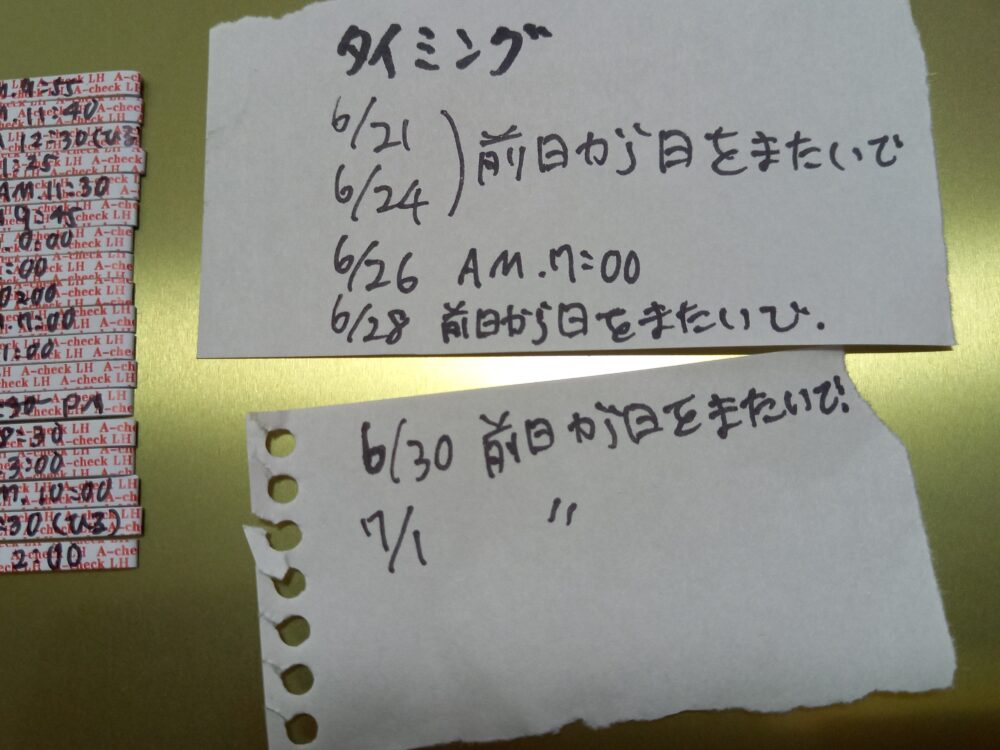 タイミング
6/21
6/24
前日から日をまたいで
6/26 AM.7:00
6/28 前日から日をまたいで.
6/30 前日から日をまたいで!
7/1 〃
A-check LH
11:40
12:30(ひる)
AM.11:30
9:45
0:00
:00
7:00
1:00
A-check LH
:30 PM
8:30
3:00
10:00
:30(ひる)
2:00
A-check LH